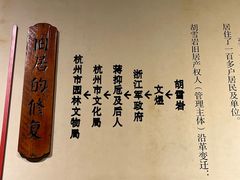 居住了一百多户居民及单位。
胡雪岩旧居产权人（管理主体）沿革变迁：
胡雪岩
文煜
浙江军政府
蒋抑卮及后人
杭州市文化局
杭州市园林文物局
旧居的修复